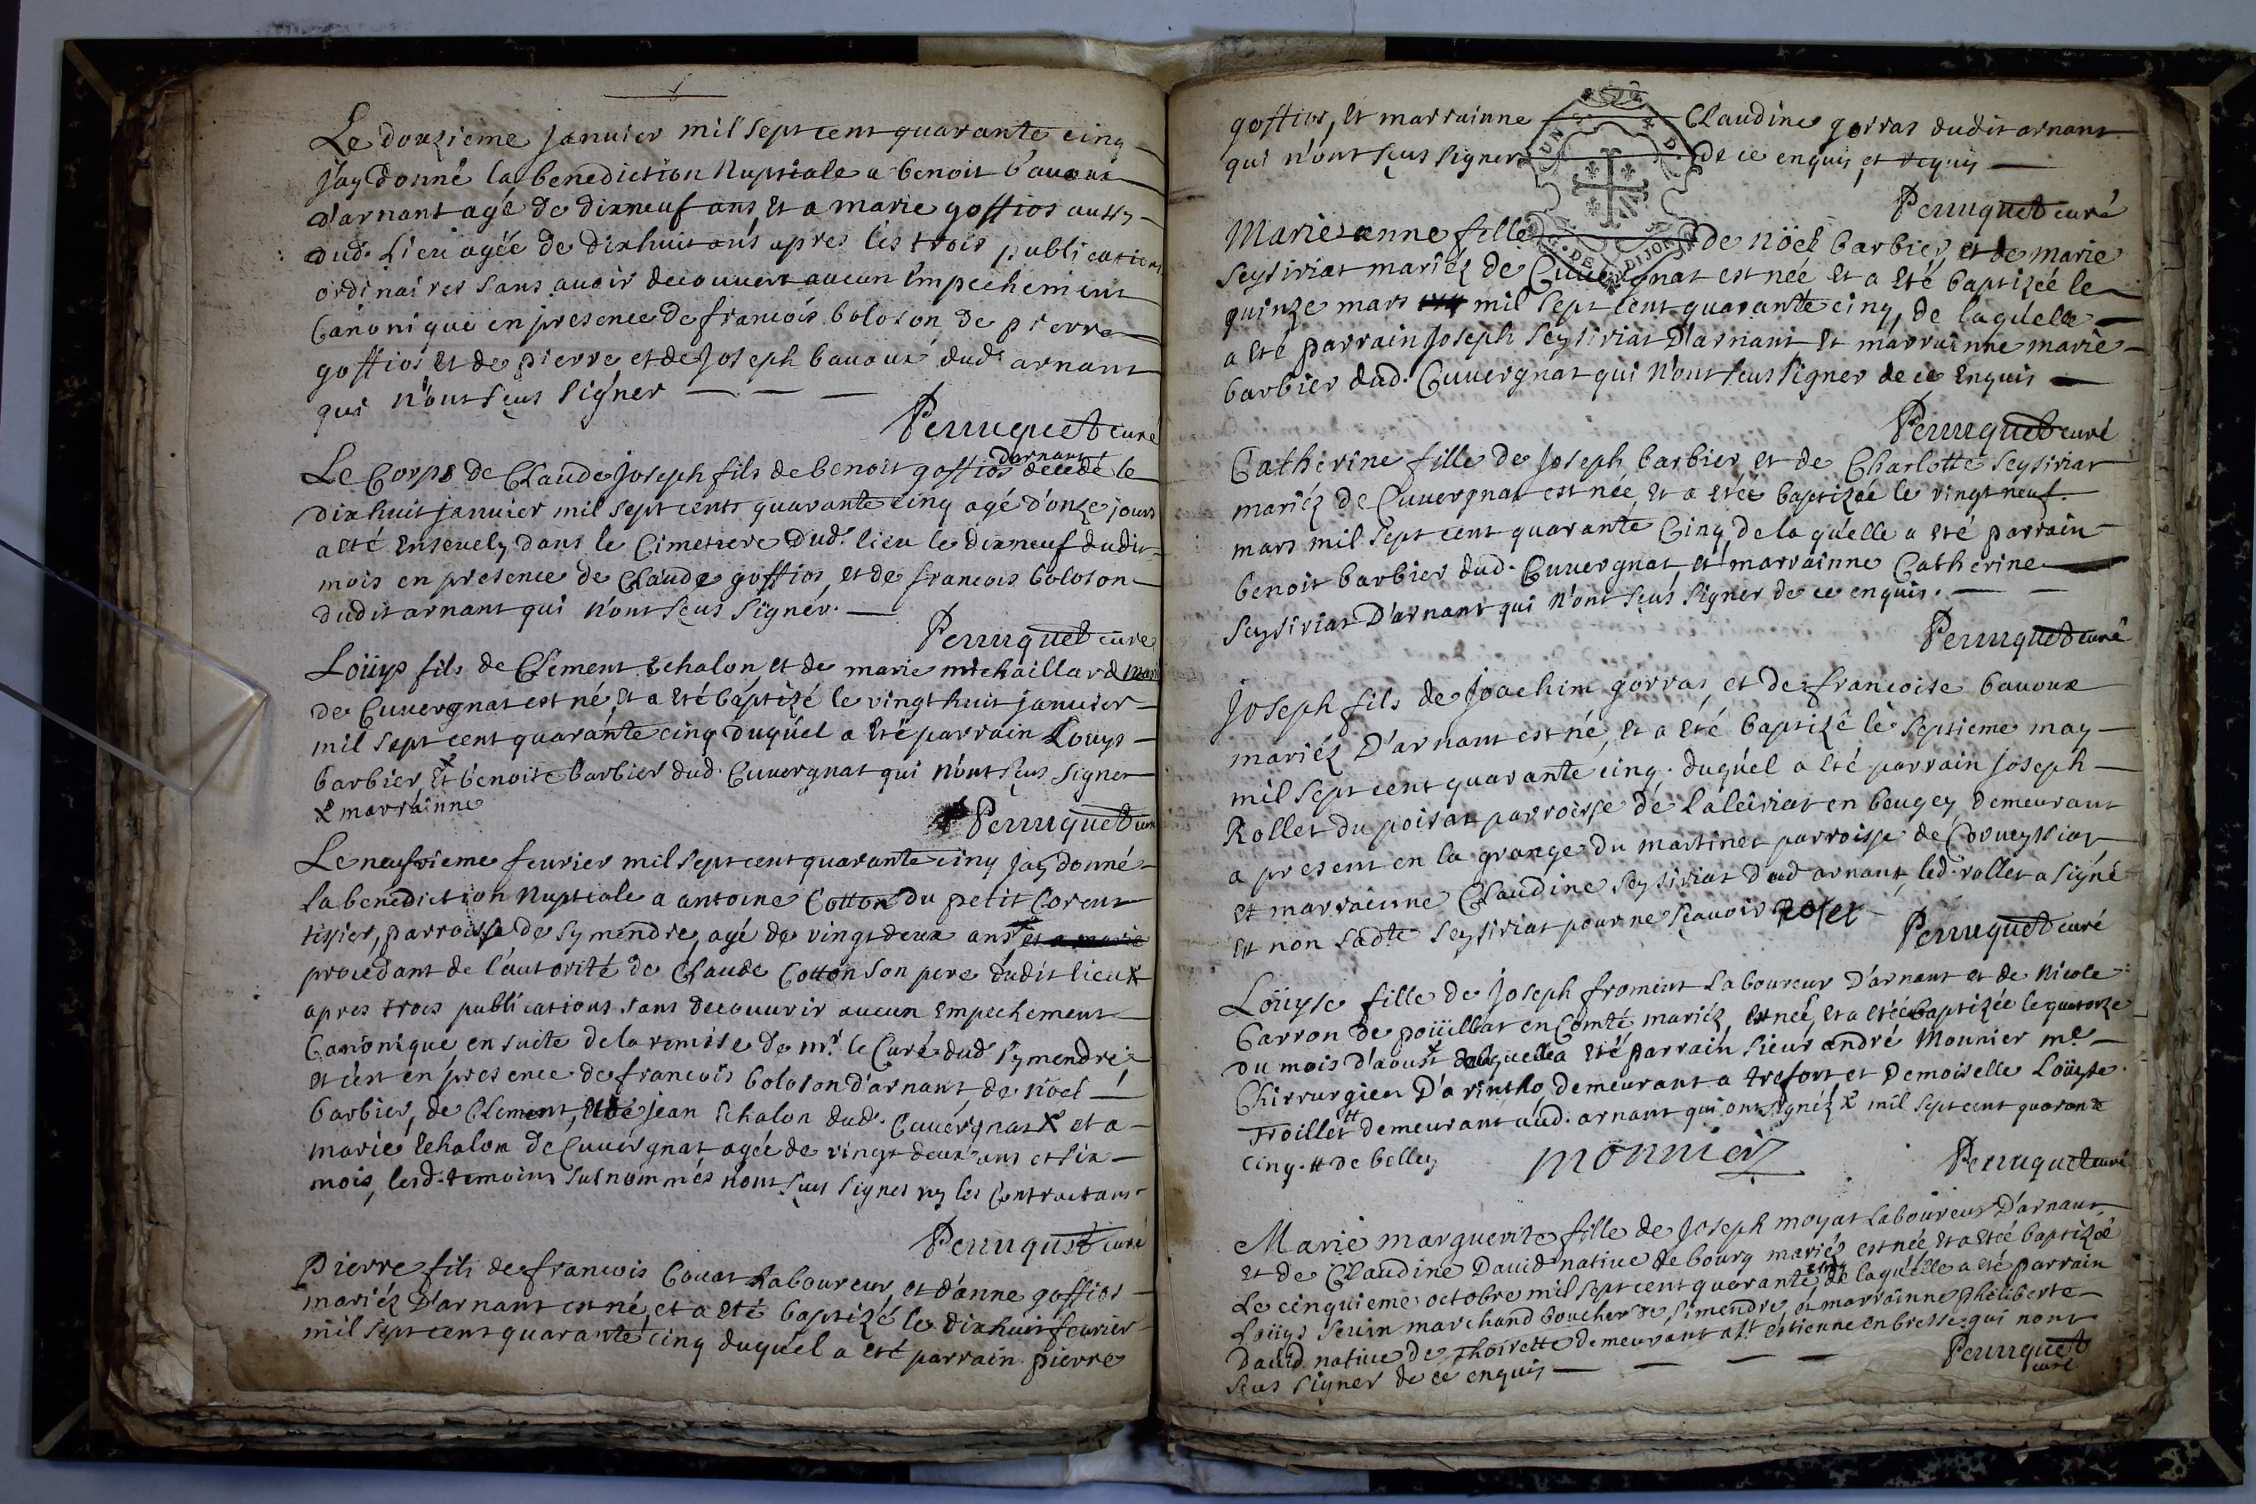 Le douzieme januier mil sept cent quarante cinq
j'ay donné la benediction Nuptiale a benoit bauoux
d'arnant agé de dixneuf ans, et a marie goffios aussy
dud. Lieu agée de dixhuit ans apres les trois publications
ordinaires sans auoir decouuert aucun Empechement
Canonique en presence de francois boloson de pierre
goffios et de pierre et de Joseph bauoux dud. arnant
qui n'ont sçus signer
Perruquet curé
darnant
Le Corps de Claude Joseph fils de benoit goffios decedé le
dixhuit januier mil sept cents quarante cinq agé d'onze jours
a eté Enseuely dans le Cimetiere dud. lieu le dixneuf dudit
mois en presence de Claude goffios, et de francois boloson
dudit arnant qui n'ont sçus signer.
Perruquet curé
Loüys fils de Clement Echalon, et de marie michaillard mari
de Cuuergnat est né, et a eté baptizé le vingt huit januier
mil sept cent quarante cinq duquel a eté parrain Louys
barbier, et x benoite barbier dud. Cuuergnat qui n'ont sçus signer
x marrainne
Perruquet curé
Le neufvieme feurier mil sept cent quarante cinq jay donné
la benediction Nuptiale a antoine Cotton du petit Corent
tissier, parroisse de Symendre, agé de vingt deux ans, et a marie
procedant de l'autorité de Claude Cotton son pere dudit lieu x
apres trois publications sans decouurir aucun Empechement
Canonique en suite de la remise de mr. le Curé dud. Symendre,
et c'est en presence de francois boloson d'arnant, de noel
barbier, de Clement, et de jean Echalon dud. Cuuergnat x et a
marie Echalon de Cuuergnat agée de vingt deux ans et six
mois, lesd. temoins susnommés n'ont sçus signer ny les Contractans
Perruquet curé
Pierre fils de francois Couat Laboureur, et d'anne goffios
mariéz D'arnant est né, et a eté baptizé le dixhuit feurier
mil sept cent quarante cinq duquel a eté parrain pierre
goffios, et marrainne Claudine gorras dudit arnant
qui n'ont sçus signer de ce enquis, et requis
Perruquet curé
Marie anne fille de nöel barbier, et de marie
Seysiriat mariéz de Cuuergnat est née et a eté baptizée le
quinze mars mil sept cent quarante cinq, de laquelle
a eté parrain Joseph Seysiriat D'arnant et marrainne marie
barbier dud. Cuuergnat qui n'ont sçus signer de ce Enquis
Perruquet curé
Catherine fille de Joseph barbier et de Charlotte Seysiriat
mariéz de Cuuergnat est née, et a etée baptizée le vingt neuf
mars mil sept cent quarante Cinq, de laquelle a eté parrain
benoit barbier dud. Cuuergnat et marrainne Catherine
Seysiriat D'arnant qui n'ont sçus signer de ce enquis.
Perruquet curé
Joseph fils de Joachim gorras, et de francoise bauoux
mariéz D'arnant est né, et a eté baptizé le septieme may
mil sept cent quarante cinq. duquel a eté parrain joseph
Rollet du poisat parroisse de Laleiriat en beugey demeurant
a present en la grange du martinet parroisse de Corueyssiat
et marrainne Claudine Seysiriat dud arnant, led. rollet a signé
et non ladte Seysiriat pour ne sçauoir
Perruquet curé
Loüyse fille de Joseph froment Laboureur D'arnant et de Nicole
Carron de poüillat en Comté mariéz, est née, et a etée baptizée le quatorze
du mois d'aoust x de laquelle a eté parrain sieur andré Monnier me.
Chirurgien D'arintho, demeurant a trefort, et Demoiselle Loüyse
Troillet tt demeurant aud. arnant qui ont signéz x mil sept cent quarante
cinq. tt de belley
monnier
Perruquet curé
Marie marguerite fille de Joseph moyat Laboureur D'arnant
et de Claudine Dauid natiue de bourg mariéz est née et a eteé baptizée
Le cinquieme octobre mil sept cent quarante cinq de laquelle a eté parrain
Loüys Seuin marchand boucher de Simendre, et marrainne philiberte
Dauid natiue de Thoirette demeurant a st. estienne en bresse qui n'ont
sçus signer de ce enquis
Perruquet
curé